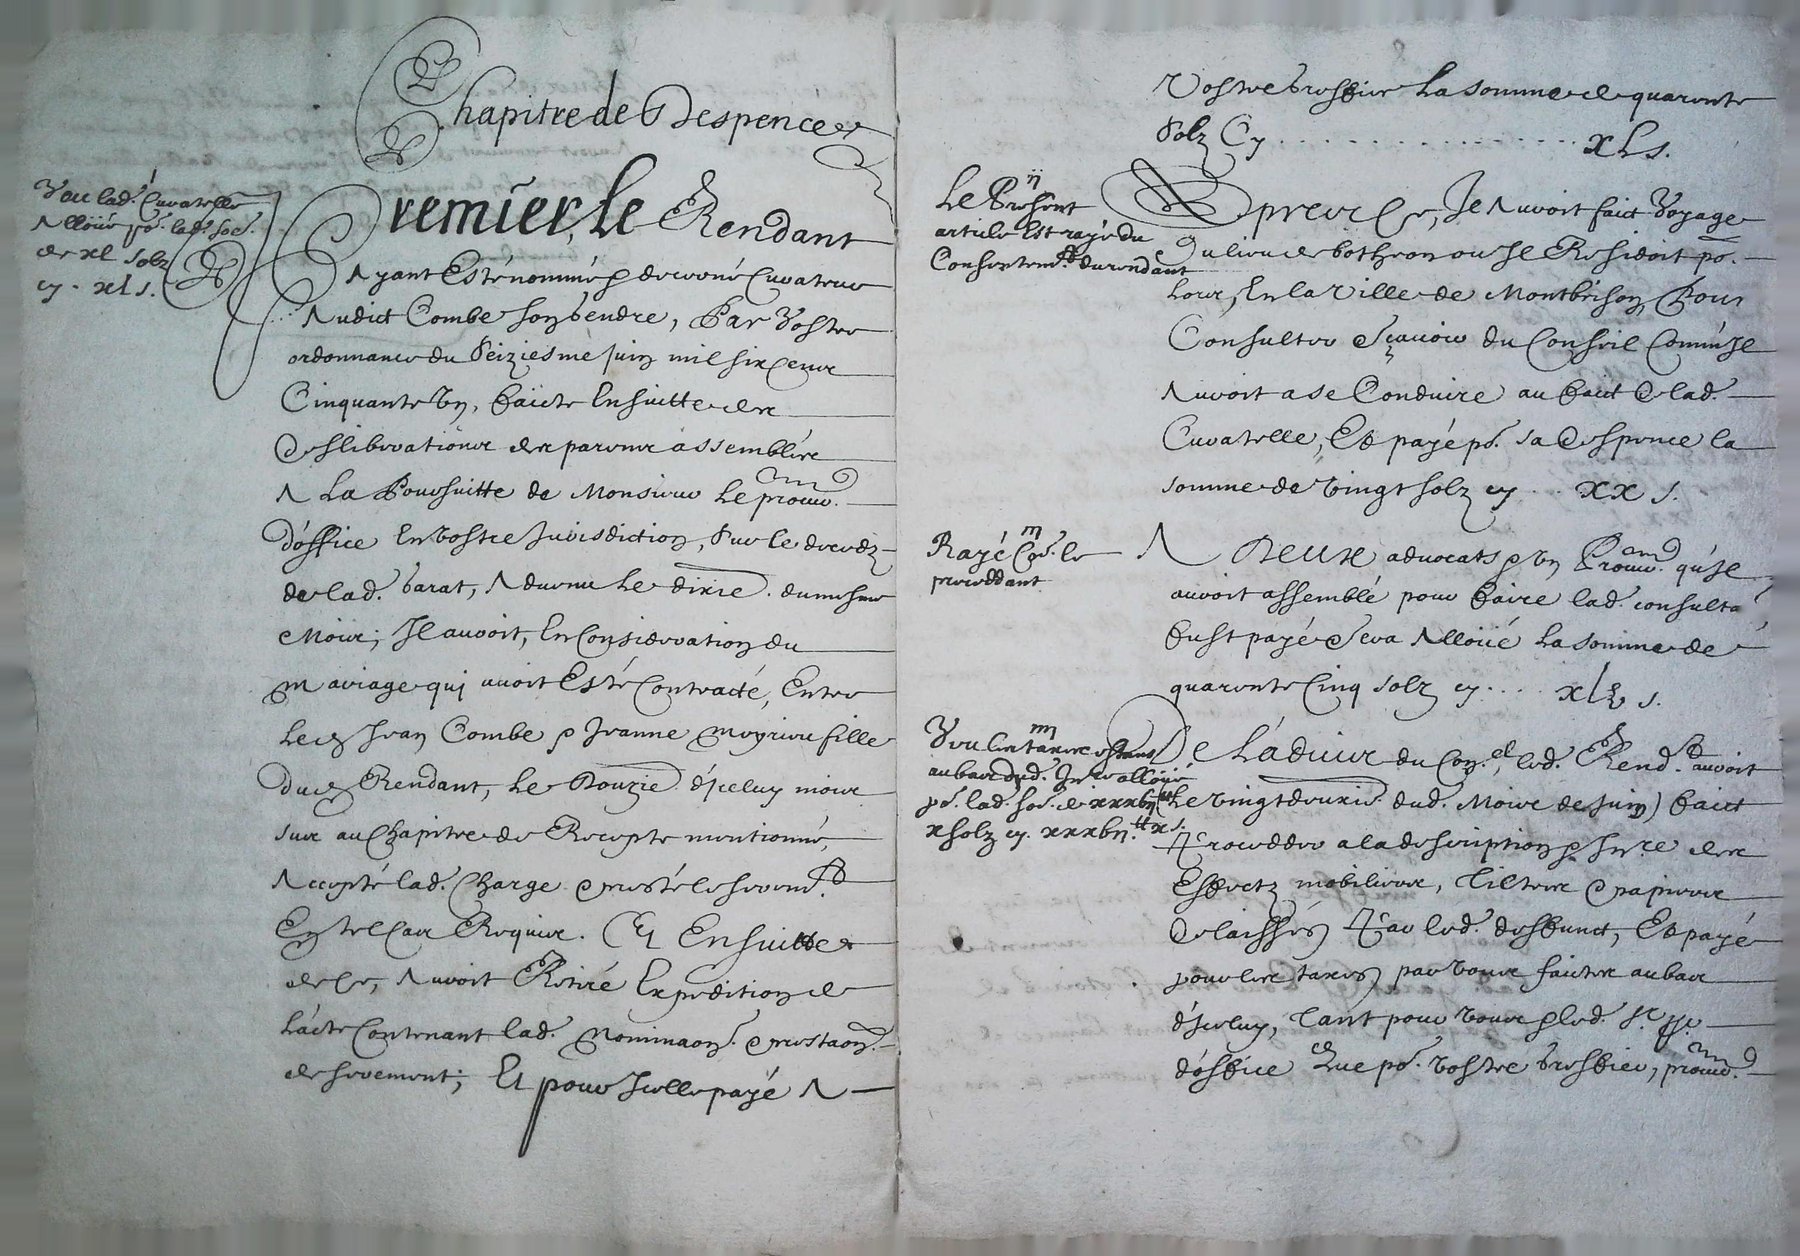 Chapitre de Despences
Veu lad. Curatelle
Alloüé po.r lad. soe.
de xl solz
cy. xl s.
Premier, le Rendant
Ayant Esté nommé & decerné Curateur
Audict Combe son gendre, Par Vostre
ordonnance du seiziesme juin mil six cens
Cinquante un, faicte Ensuitte des
deslibérations des parens assemblés
A La Poursuitte de Monsieur Le procur.
d'office En vostre jurisdiction, sur le decedz
de lad. barat, Advenu Le dixie. du mesme
Mois; Il auoit, En Consideration du
mariage quj auoit Esté Contracté, Entre
Led. Jean Combe & Jeanne meyrieu fille
dud. Rendant, Le Douzie. d'jceluy mois
sus au Chapitre de Recepte mentionné,
Accepté lad. Charge & presté le serem.t
En tel cas Requis. Et Ensuitte
de Ce, Auoit Retiré Expedition de
L'acte Contenant lad. Nominaon. & prestaon.
de serement; Et pour Jcelle payé A
Vostre Greffier La somme de quarente
solz Cy . . . . . . . . . . xl s.
ij
Le Present
article Est rayé du
Consentem.t du rendant
Apres Ce, Il Auoit faict Voyage
du lieu de botheon ou Il Residoit po.
lors, En la Ville de Montbrison, Pour
Consulter & sçauoir du Conseil Comm'Il
Auoit a se Conduire au faict de lad.
Curatelle, Et payé po.r sa despence la
somme de vingt solz cy . . . xx s.
iij
Rayé Co.e le
preceddant
A Deux aduocats & un Procur. qu'Il
auoit assemblé pour faire lad. consulta.
fust payé & sera Alloüé La somme de
quarente Cinq solz cy . . . . xlv s.
iiij
Veu les taxes estant
au bas dud. Inre. alloüé
po.r lad. soe. de xxxvij tt
x solz cy. xxxvij tt x s.
De L'aduis du Con.el, led. Rend.t auoit
(Le vingtdeuxie. dud. Mois de juin) faict
Proceddér a la description & Inre. des
Effectz mobiliers, tiltres & papiers
delaissés Par led. deffunct, Et payé
pour les taxes par vous faictes au bas
d'jceluy, tant pour vous & led. sr. pr.
d'office que po.r vostre Greffier, procur.